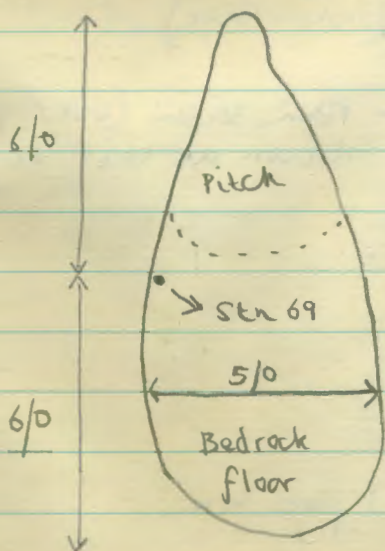 6/0
Pitch
Stn 69
5/0
6/0
Bedrock
floor